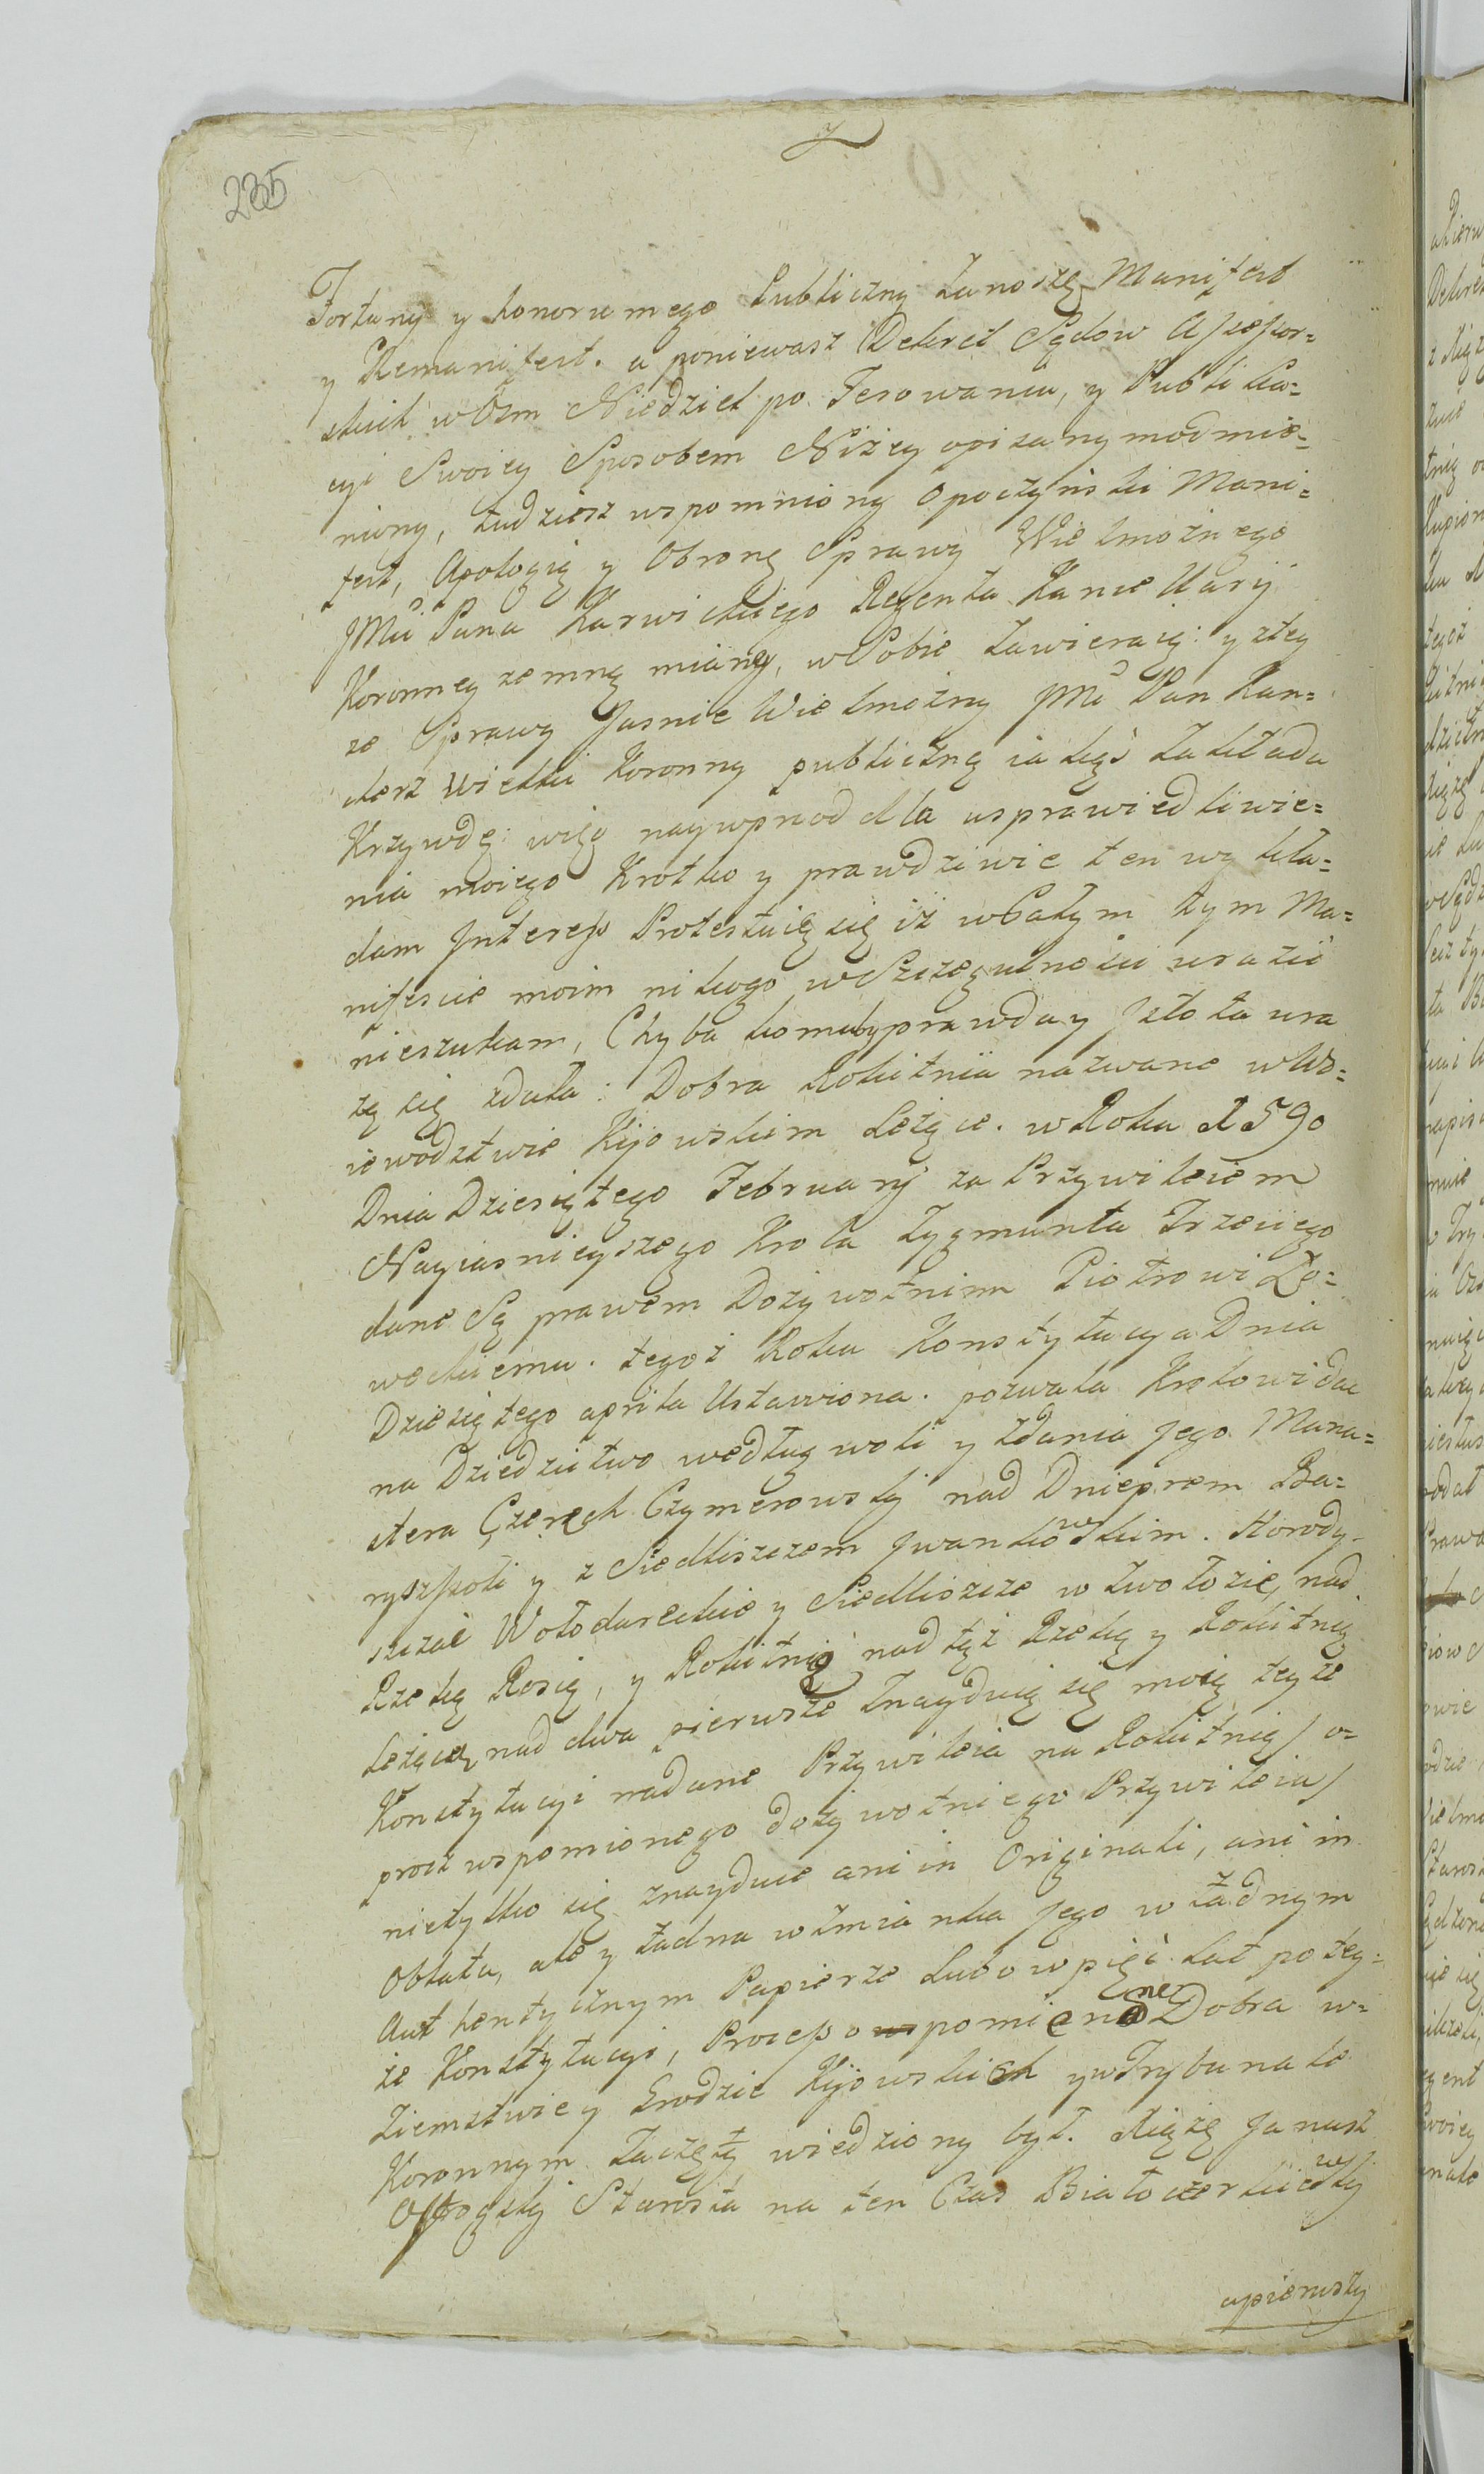 235
Fortuny y honoru mego Publiczny Zanoszę Manifest
y Remanifest. a poniewasz Dekret Sądow Assessor=
skich w Ośm Niedziel po Ferowaniu, y Publika=
cyi Swoiey Sposobem Niżey opisanym odmie=
niony, tudziesz wspomniony Opoczyński Mani=
fest, Apologią y Obronę Sprawy Wielmożnego
JMci Pana Karwickiego Regenta Kancellaryi
Koronney zemną mianey, w Sobie Zawieraią: y ztey
ze Sprawy Jasnie Wielmożny JMć Pan Kan=
clerz Wielki Koronny publiczną iakąś Zakłada
Krzywdę: więc naywprzod dla usprawiedliwie=
nia moiego Krotko y prawdziwie ten wykła=
dam Interess Protestuię się iż w Całym tym Ma=
nifescie moim nikogo w Szczegulności urazić
nieszukam, Chyba komuby prawda y Istota ura
zą się zdała: Dobra Rokitnia nazwane w Wo=
iewodztwie Kijowskim Leżące. w Roku 1590
Dnia Dziesiątego February za Przywileiem
Nayiasnieyszego Krola Zygmunta Trzeciego
dane Są prawem Dożywotnim Piotrowi Le=
weckiemu. tegoż Roku Konstytucya Dnia
Dziesiątego aprila Ustawiona. pozwala Krolowi dać
na Dziedzictwo według woli y zdania Jego Mona=
stera Czerech Czymerowsky nad Dnieprem Bo=
ryszpoli y z Siedliszczem Iwankowskim. Horody=
szcze Wołodareckie y Siedliszcze w Zwołozie, nad
Rzeką Rosią, y Rokitnię nad tąż Rzeką y Rokitnią
Leżące, nad dwa pierwsze Znayduią się mocą teyże
Konstytucyi nadane Przywileia na Rokitnię / o=
procz wspomionego dożywotniego Przywileia /
nietylko się znayduie ani in Originali, ani in
Oblata, ale y żadna wzmianka Jego w żadnym
Authentycznym Papierze Lubo w pięć Lat po tey=
że Konstytucyi, Process o pomienione Dobra w=
Ziemstwie y Grodzie Kijowskich y w Trybunale
Koronnym Zaczęty wiedziony był. Xiążę Janusz
Ostrogsky Starosta na ten Czas Białocerkiewsky
apierwszy